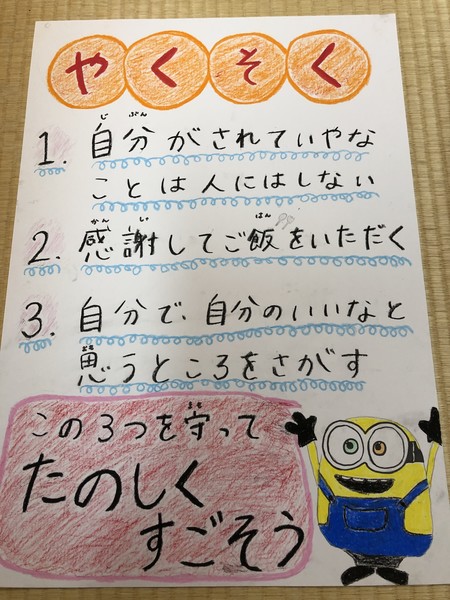 やくそく
1. 自分がされていやな
ことは人にはしない
2. 感謝してご飯をいただく
3. 自分で、自分のいいなと
思うところをさがす
この3つを守って
たのしく
すごそう